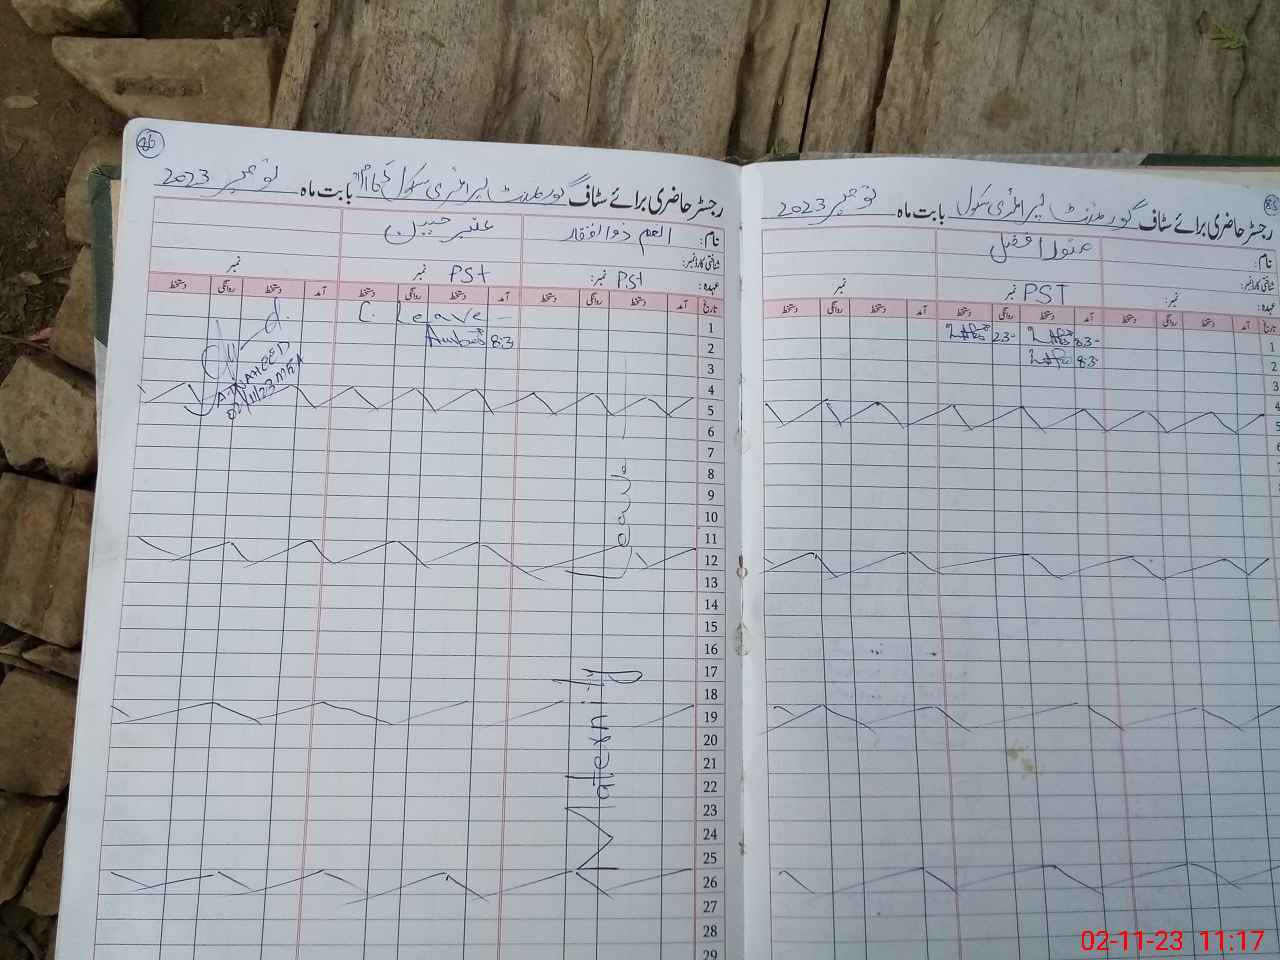 85
رجسٹر حاضری برائے سٹاف گورنمنٹ پرائمری سکول بابت ماہ نومبر 2023
نام:
شناختی کارڈ نمبر:
عہدہ: نمبر: PST نمبر نمبر
تاریخ آمد دستخط روانگی دستخط آمد دستخط روانگی دستخط آمد دستخط روانگی دستخط
1 8:3- 2:3-
2 8:3-
3
4
5
6
7
8
86
رجسٹر حاضری برائے سٹاف گورنمنٹ پرائمری سکول بابت ماہ نومبر 2023
نام: انعم ذوالفقار عنبر جبین
شناختی کارڈ نمبر:
عہدہ: PST نمبر: PST نمبر نمبر
تاریخ آمد دستخط روانگی دستخط آمد دستخط روانگی دستخط آمد دستخط روانگی دستخط
1 C. Leave -
2 8:3
3
4
5
6
7
8
9
10
11
12
13
14
15
16
17
18
19
20
21
22
23
24
25
26
27
28
29
Maternity Leave
02/11/23 MEA
02-11-23 11:17